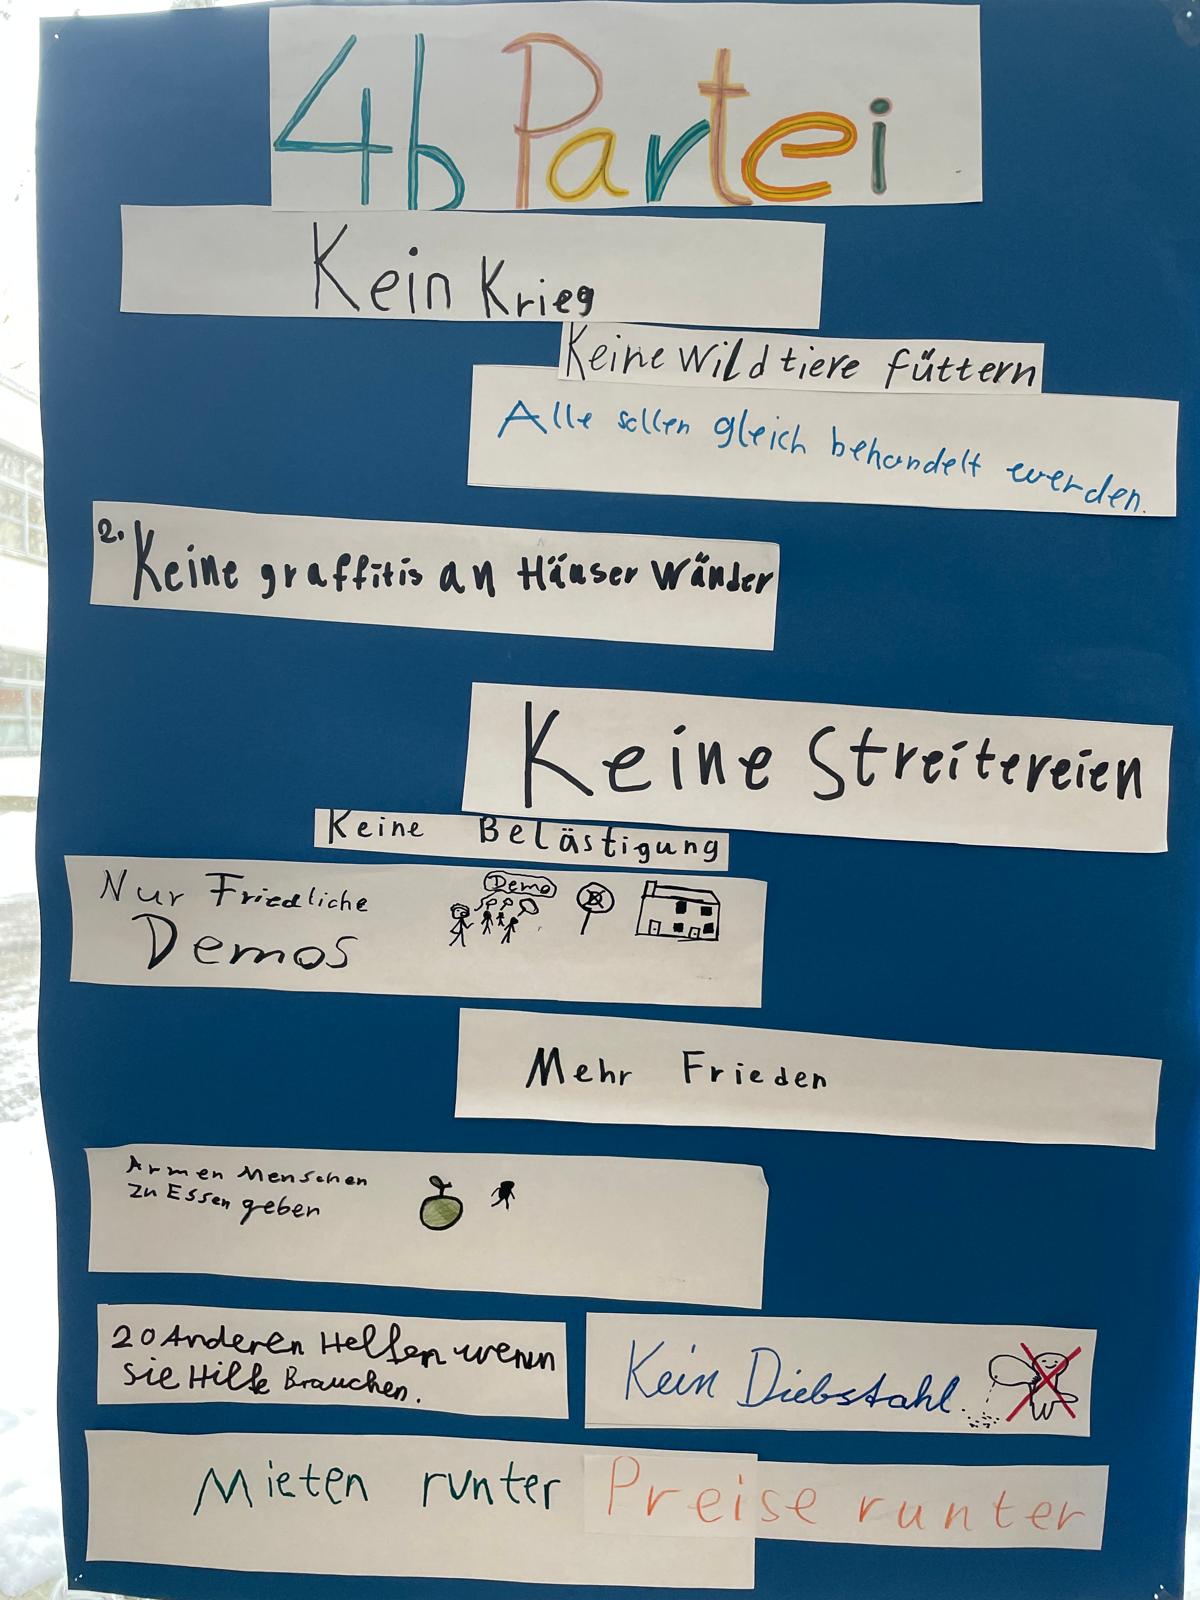 4b Partei
Kein Krieg
Keine Wildtiere füttern
Alle sollen gleich behandelt werden.
2. Keine graffitis an Häuser Wänder
Keine Streitereien
Keine Belästigung
Nur Friedliche
Demo
Demos
Mehr Frieden
Armen Menschen
zu Essen geben
20 Anderen Helfen wenn
sie Hilfe Brauchen.
Kein Diebstahl
Mieten runter
Preise runter